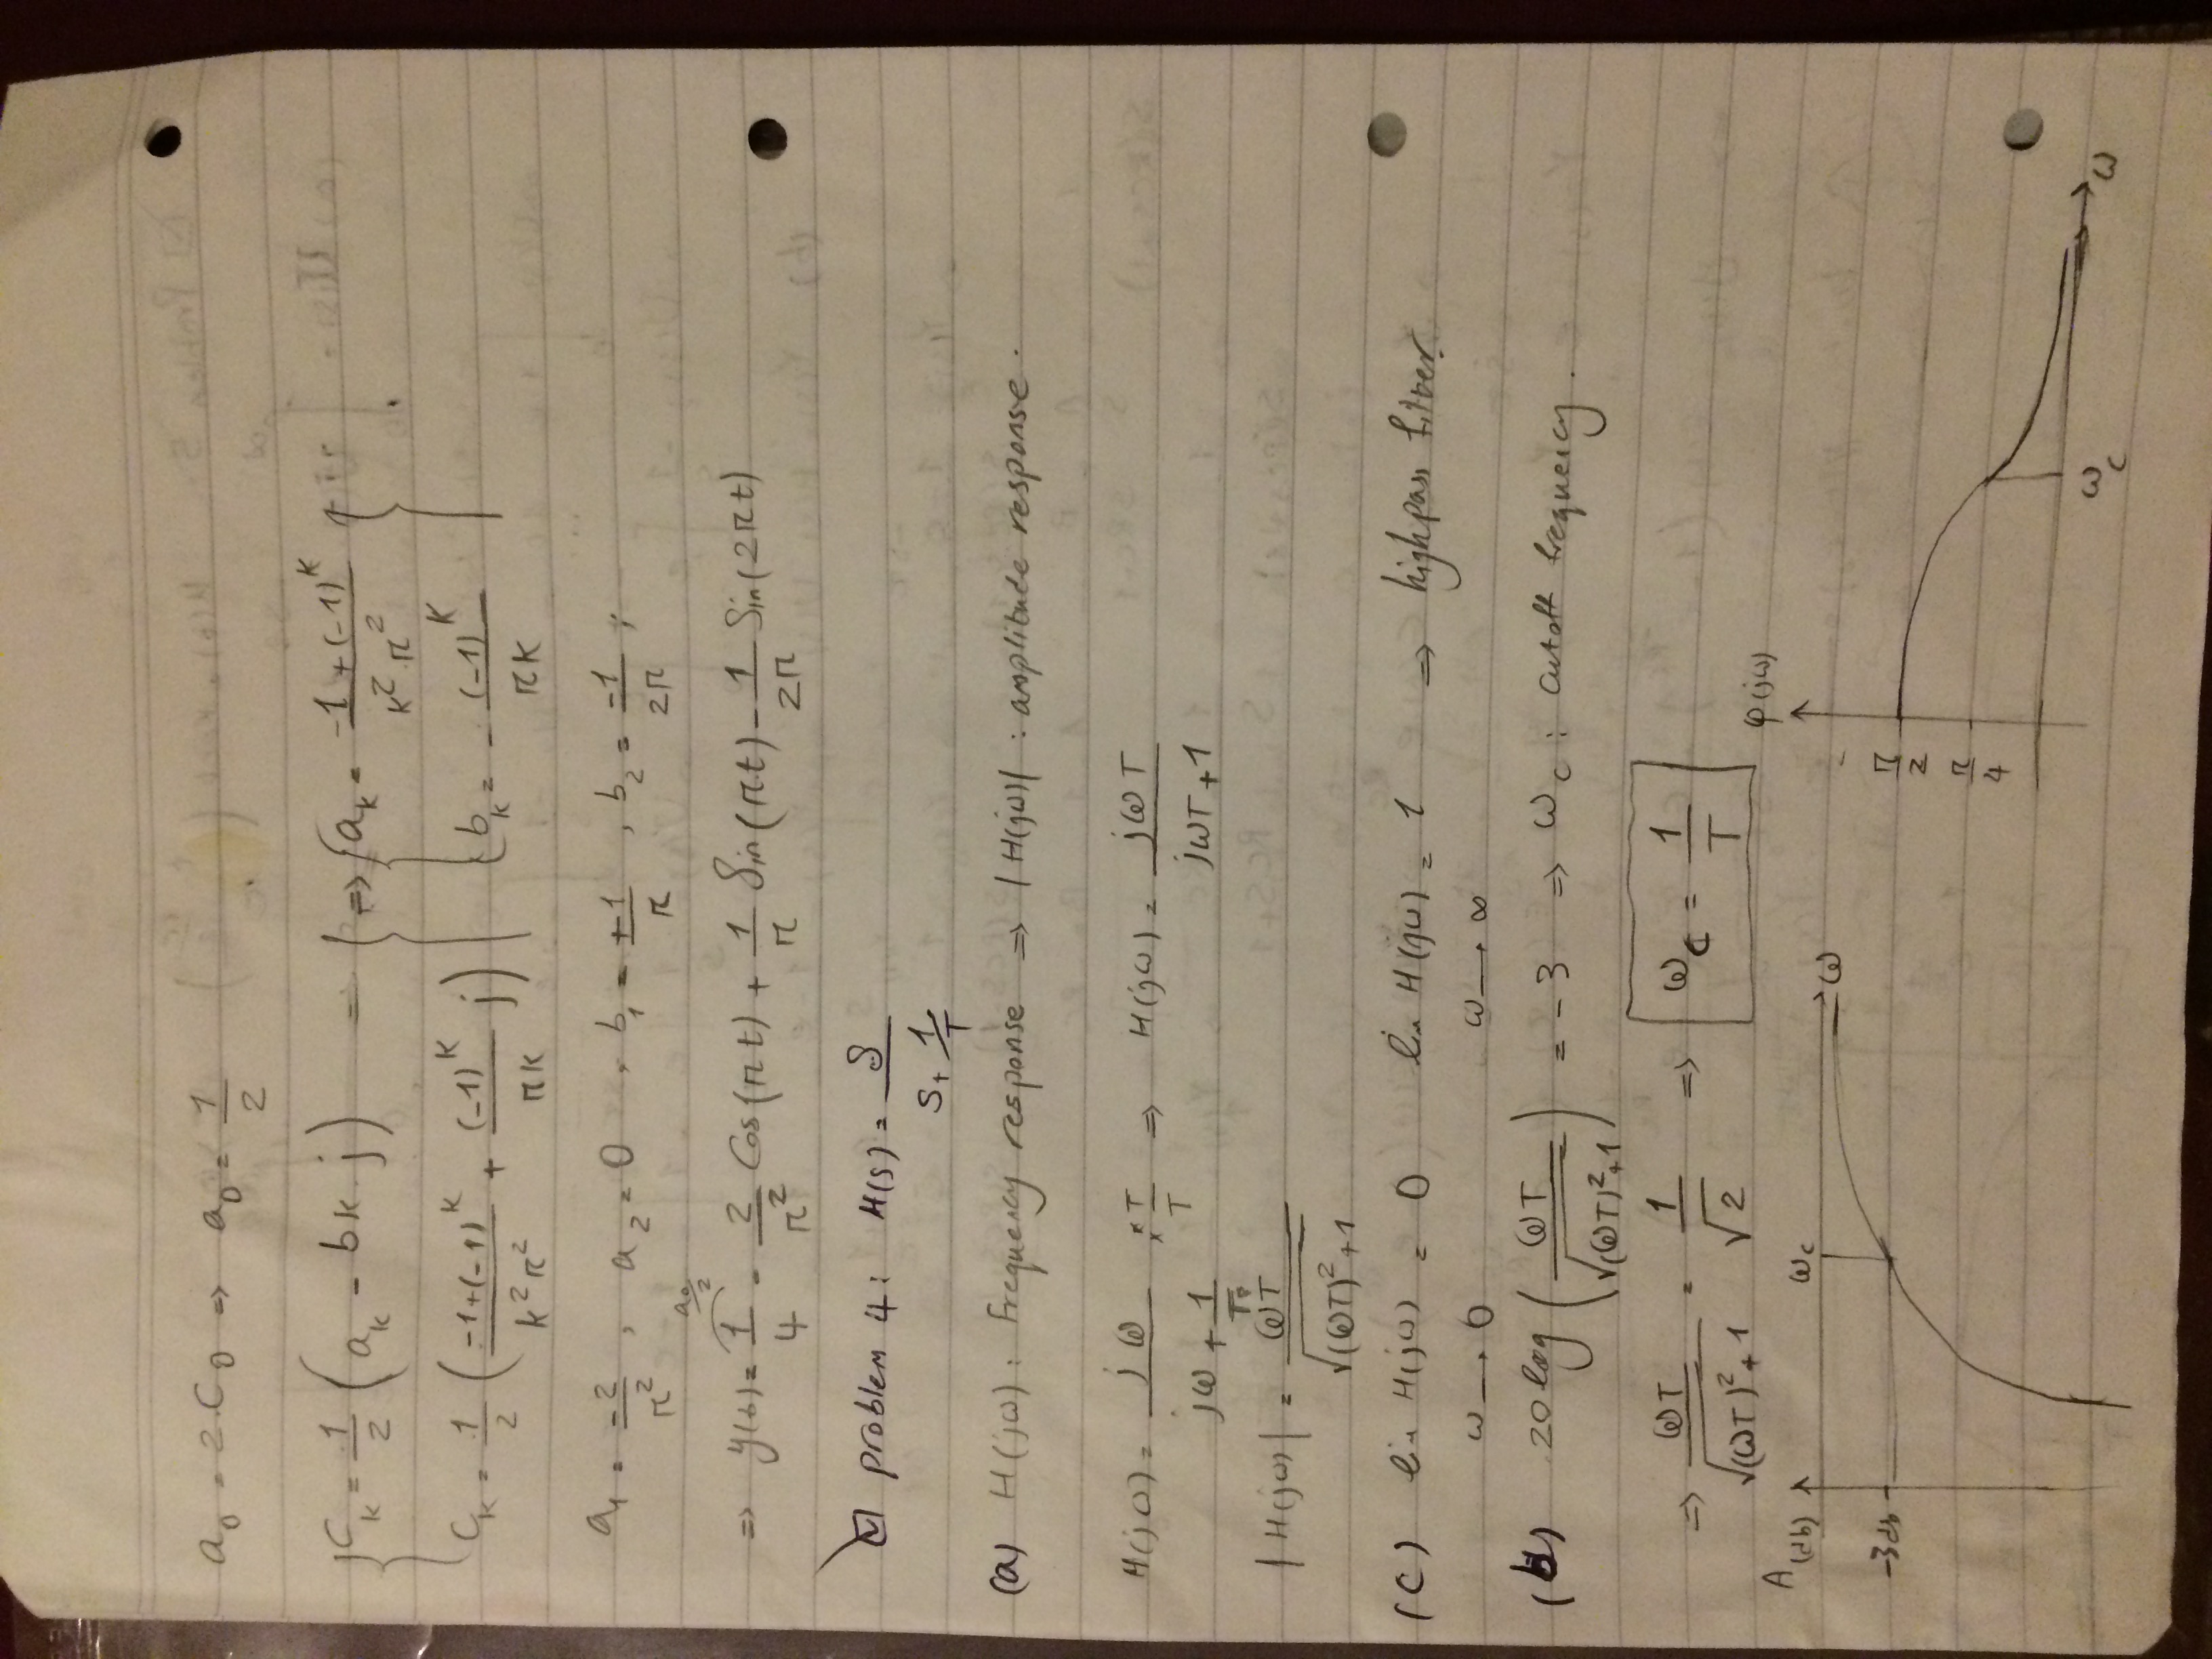 a₀ = 2·C₀ ⇒ a₀ = 1/2
{ C_k = 1/2 (a_k - b_k·j) = } ⇒ { a_k = (-1+(-1)^k)/(k²·π²) }
{ C_k = 1/2 ((-1+(-1)^k)/(k²π²) + (-1)^k/(πk) j) } { b_k = - (-1)^k/(πk) }
a₁ = -2/π² , a₂ = 0 , b₁ = +1/π , b₂ = -1/2π ;
a₀/2
⇒ y(t) = 1/4 - 2/π² Cos(πt) + 1/π Sin(πt) - 1/2π Sin(2πt)
☑ problem 4: H(s) = S/(S + 1/T)
(a) H(jω): Frequency response ⇒ |H(jω)| : amplitude response.
H(jω) = jω/(jω + 1/T) × T/T ⇒ H(jω) = jωT/(jωT + 1)
|H(jω)| = ωT/√((ωT)² + 1)
(c) lim H(jω) = 0 lim H(jω) = 1 ⇒ highpass filter.
ω → 0 ω → ∞
(b) 20 log (ωT/√((ωT)²+1)) = -3 ⇒ ω_c : cutoff frequency.
⇒ ωT/√((ωT)²+1) = 1/√2 ⇒ ω_c = 1/T
A(db) ω_c ω
-3db
φ(jω)
π/2
π/4
ω_c ω